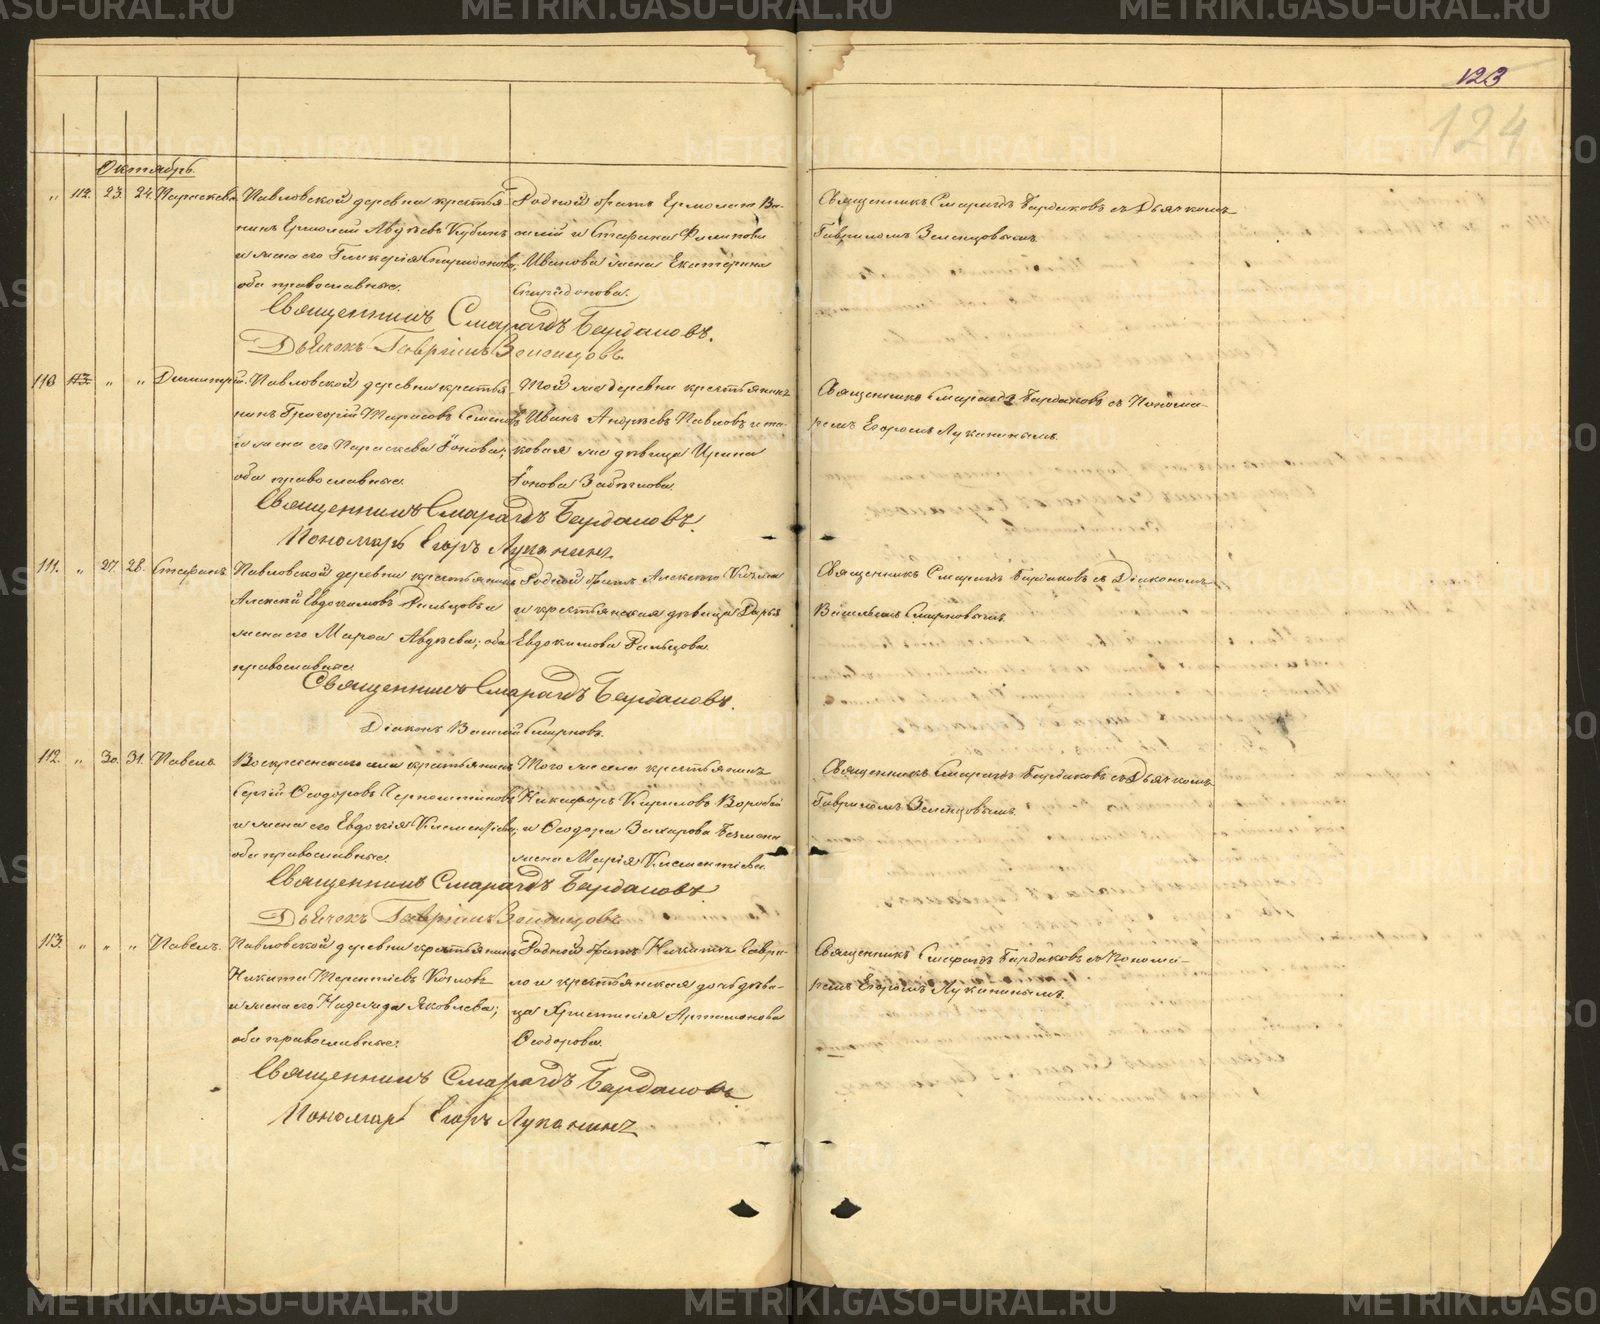 123
124
Октябрь.
" 112. 23. 24. Параскева. Павловской деревни крестья-
нинъ Ермолай Авдѣевъ Кубинъ
и жена его Гликерія Спиридонова,
оба православные.
Родной братъ Ермолаю Ва-
силій и Стефана Филипова
Иванова жена Екатерина
Спиридонова.
Священникъ Смарагдъ Бардаковъ съ Дьячкомъ
Гавріиломъ Зеленцовымъ.
Священникъ Смарагдъ Бардаковъ.
Дьячекъ Гавріилъ Зеленцовъ.
110. 113. " " Димитрій. Павловской деревни крестья-
нинъ Григорій Тарасовъ
и жена его Параскева Іонова;
оба православные.
Той же деревни крестьянинъ
Иванъ Андреевъ Павловъ и та-
ковая же дѣвица Ирина
Іонова
Священникъ Смарагдъ Бардаковъ съ Понома-
ремъ Егоромъ Луканинымъ.
Священникъ Смарагдъ Бардаковъ.
Пономарь Егоръ Луканинъ
111. " 27. 28. Стефанъ. Павловской деревни крестьянинъ
Алексѣй Евдокимовъ Рильцовъ и
жена его Марѳа Авдѣева; оба
православные.
Родной братъ Алексѣю Козьма
и крестьянская дѣвица Дарья
Евдокимова Рильцова.
Священникъ Смарагдъ Бардаковъ съ Діакономъ
Василіемъ Смирновымъ.
Священникъ Смарагдъ Бардаковъ.
Діаконъ Василій Смирновъ.
112. " 30. 31. Павелъ. Воскресенскаго села крестьянинъ
Сергій Ѳеодоровъ
и жена его Евдокія Клементіева;
оба православные.
Того же села крестьянинъ
Никифоръ Кириловъ Воробей
и Ѳеодора Захарова
жена Марія Клементіева.
Священникъ Смарагдъ Бардаковъ съ Дьячкомъ
Гавріиломъ Зеленцовымъ.
Священникъ Смарагдъ Бардаковъ.
Дьячекъ Гавріилъ Зеленцовъ
113. " " " Павелъ. Павловской деревни крестьянинъ
Никита Терентіевъ Козловъ
и жена его Надежда Яковлева;
оба православные.
Родной братъ Никитѣ Гаври-
ло и крестьянская дочь дѣви-
ца Христинія Артамонова
Ѳеодорова.
Священникъ Смарагдъ Бардаковъ съ Понома-
ремъ Егоромъ Луканинымъ.
Священникъ Смарагдъ Бардаковъ.
Пономарь Егоръ Луканинъ
METRIKI.GASO-URAL.RU